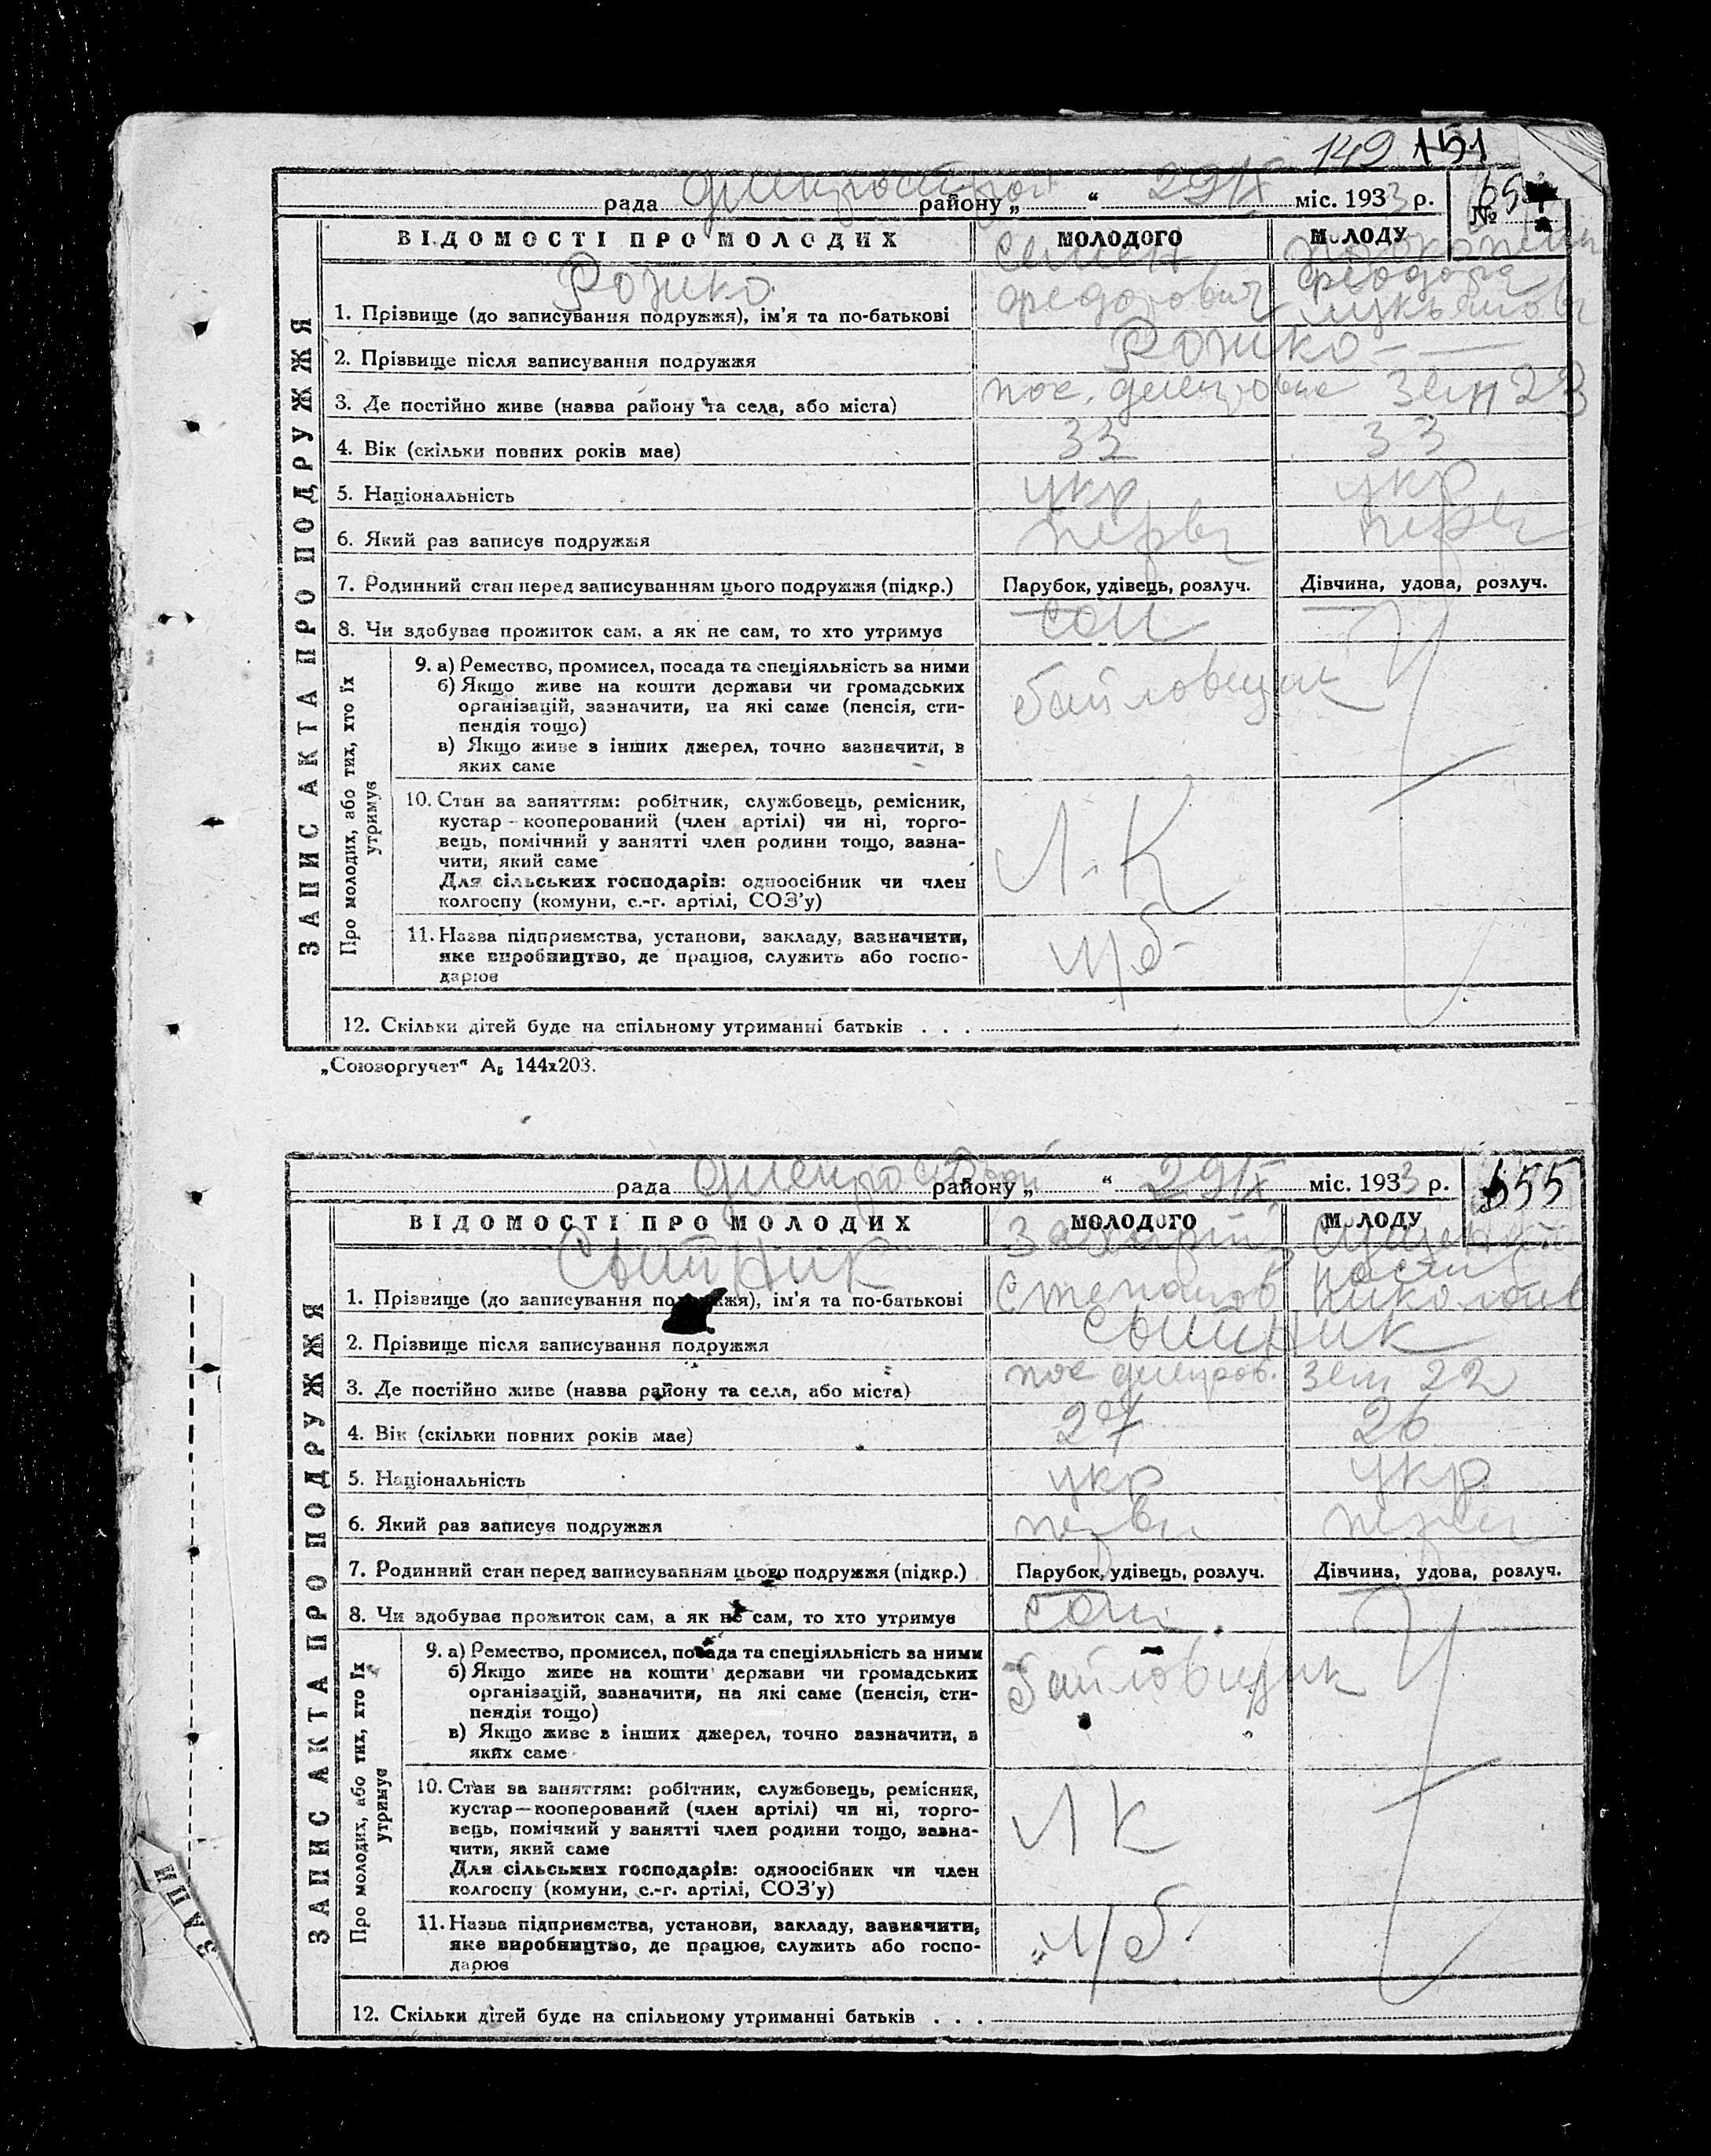 149 151
рада Днепрострой району „ “ 29 IX міс. 1933 р. №
ВІДОМОСТІ ПРО МОЛОДИХ МОЛОДОГО МОЛОДУ
Рожко Семен
1. Прізвище (до записування подружжя), ім'я та по-батькові Федорович Феодора
2. Прізвище після записування подружжя Рожко - —
3. Де постійно живе (назва району та села, або міста) пос. Зем 23
4. Вік (скільки повних років має) 33 33
5. Національність укр укр
6. Який раз записує подружжя первы первы
7. Родинний стан перед записуванням цього подружжя (підкр.) Парубок, удівець, розлуч. Дівчина, удова, розлуч.
8. Чи здобуває прожиток сам, а як не сам, то хто утримує сам
9. а) Ремество, промисел, посада та спеціяльність за ними
б) Якщо живе на кошти держави чи громадських
організацій, зазначити, на які саме (пенсія, сти-
пендія тощо)
в) Якщо живе з інших джерел, точно зазначити, з
яких саме
10. Стан за заняттям: робітник, службовець, ремісник,
кустар—кооперований (член артілі) чи ні, торго-
вець, помічний у занятті член родини тощо, зазна-
чити, який саме
Для сільських господарів: одноосібник чи член
колгоспу (комуни, с.-г. артілі, СОЗ'у)
Л. К
11. Назва підприємства, установи, закладу, зазначити,
яке виробництво, де працює, служить або госпо-
дарює
12. Скільки дітей буде на спільному утриманні батьків . . .
ЗАПИС АКТА ПРО ПОДРУЖЖЯ
Про молодих, або тих, хто їх
утримує
„Союзоргучет“ А5 144x203.
рада Днепрострой району „ “ 29 IX міс. 1933 р. 655
ВІДОМОСТІ ПРО МОЛОДИХ МОЛОДОГО МОЛОДУ
Сытник Захарий
1. Прізвище (до записування подружжя), ім'я та по-батькові Степанов Николаев
2. Прізвище після записування подружжя Сытник
3. Де постійно живе (назва району та села, або міста) пос Днепров. Зем 22
4. Вік (скільки повних років має) 27 26
5. Національність укр укр
6. Який раз записує подружжя первы первы
7. Родинний стан перед записуванням цього подружжя (підкр.) Парубок, удівець, розлуч. Дівчина, удова, розлуч.
8. Чи здобуває прожиток сам, а як не сам, то хто утримує сам
9. а) Ремество, промисел, посада та спеціяльність за ними
б) Якщо живе на кошти держави чи громадських
організацій, зазначити, на які саме (пенсія, сти-
пендія тощо)
в) Якщо живе з інших джерел, точно зазначити, з
яких саме
10. Стан за заняттям: робітник, службовець, ремісник,
кустар—кооперований (член артілі) чи ні, торго-
вець, помічний у занятті член родини тощо, зазна-
чити, який саме
Для сільських господарів: одноосібник чи член
колгоспу (комуни, с.-г. артілі, СОЗ'у)
Л К
11. Назва підприємства, установи, закладу, зазначити,
яке виробництво, де працює, служить або госпо-
дарює
12. Скільки дітей буде на спільному утриманні батьків . . .
ЗАПИС АКТА ПРО ПОДРУЖЖЯ
Про молодих, або тих, хто їх
утримує
ЗАПИ